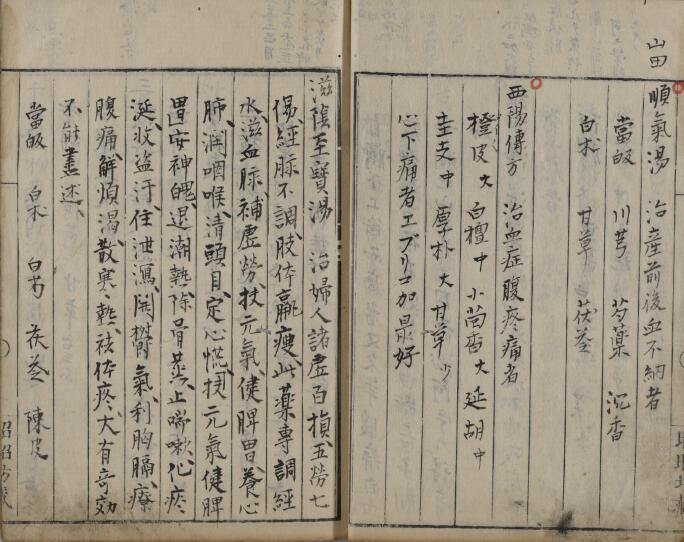 山田
順氣湯 治産前後血不納者
當皈 川芎 芍藥 沉香
白朮 甘草 茯苓
西陽傳方 治血症腹疼痛者
橙皮大 白檀中 小茴香大 延胡中
圭支中 厚朴大 甘草少
心下痛者エブリコ加最好
滋陰至寳湯 治婦人諸虛百損五勞七
傷經脉不調肢体羸瘦此藥專調經
水滋血脉補虛勞扶元氣健脾胃養心
肺潤咽喉清頭目定心慌扶元氣健脾
胃安神魄退潮熱除骨蒸止喘嗽化痰
涎收盗汗住泄瀉開欝氣利胸膈療
腹痛解煩渴散寒熱祛体疼大有奇効
不能盡述
當皈 白朮 白芍 茯苓 陳皮